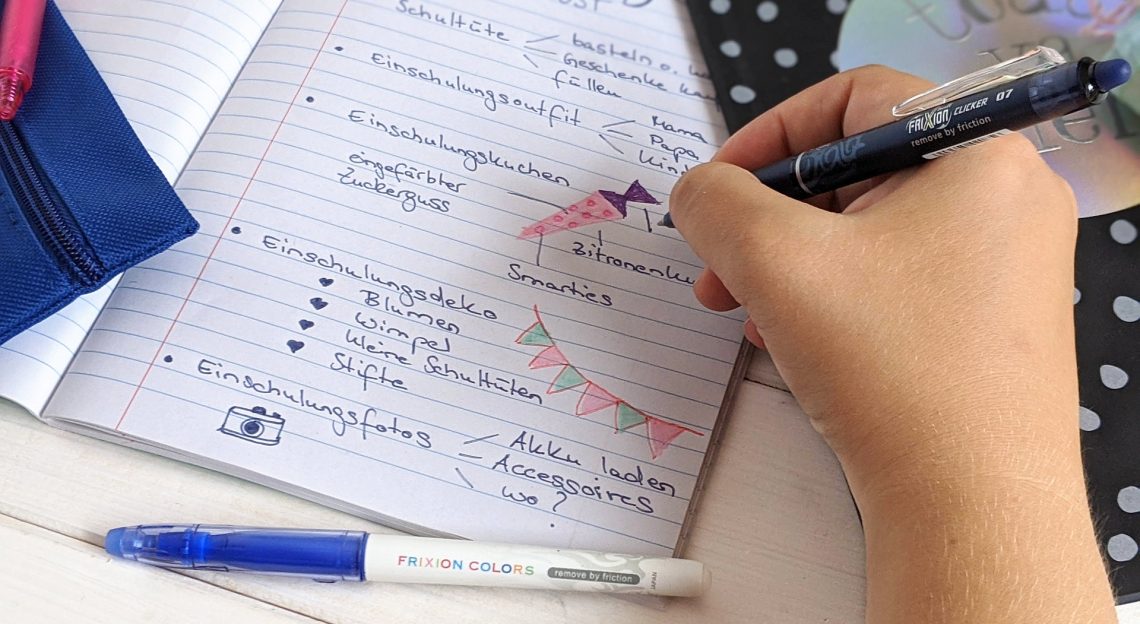 Schultüte
basteln o.
Geschenke
füllen
Einschulungsoutfit
Mama
Papa
Kind
Einschulungskuchen
eingefärbter
Zuckerguss
Zitronenku
Smarties
Einschulungsdeko
Blumen
Wimpel
kleine Schultüten
Stifte
Einschulungsfotos
Akku laden
Accessoires
wo?
FRIXION CLICKER 07
remove by friction
FRIXION COLORS
remove by friction
JAPAN